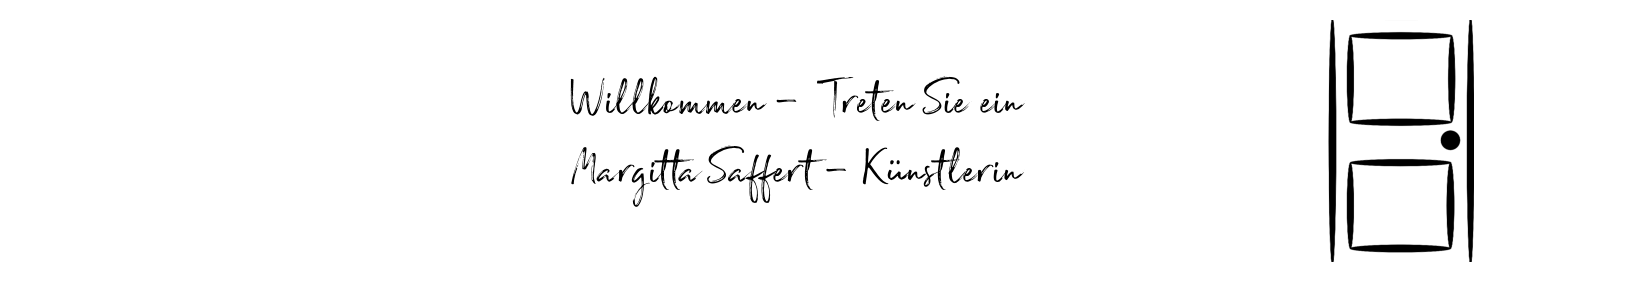 Willkommen – Treten Sie ein
Margitta Saffert – Künstlerin